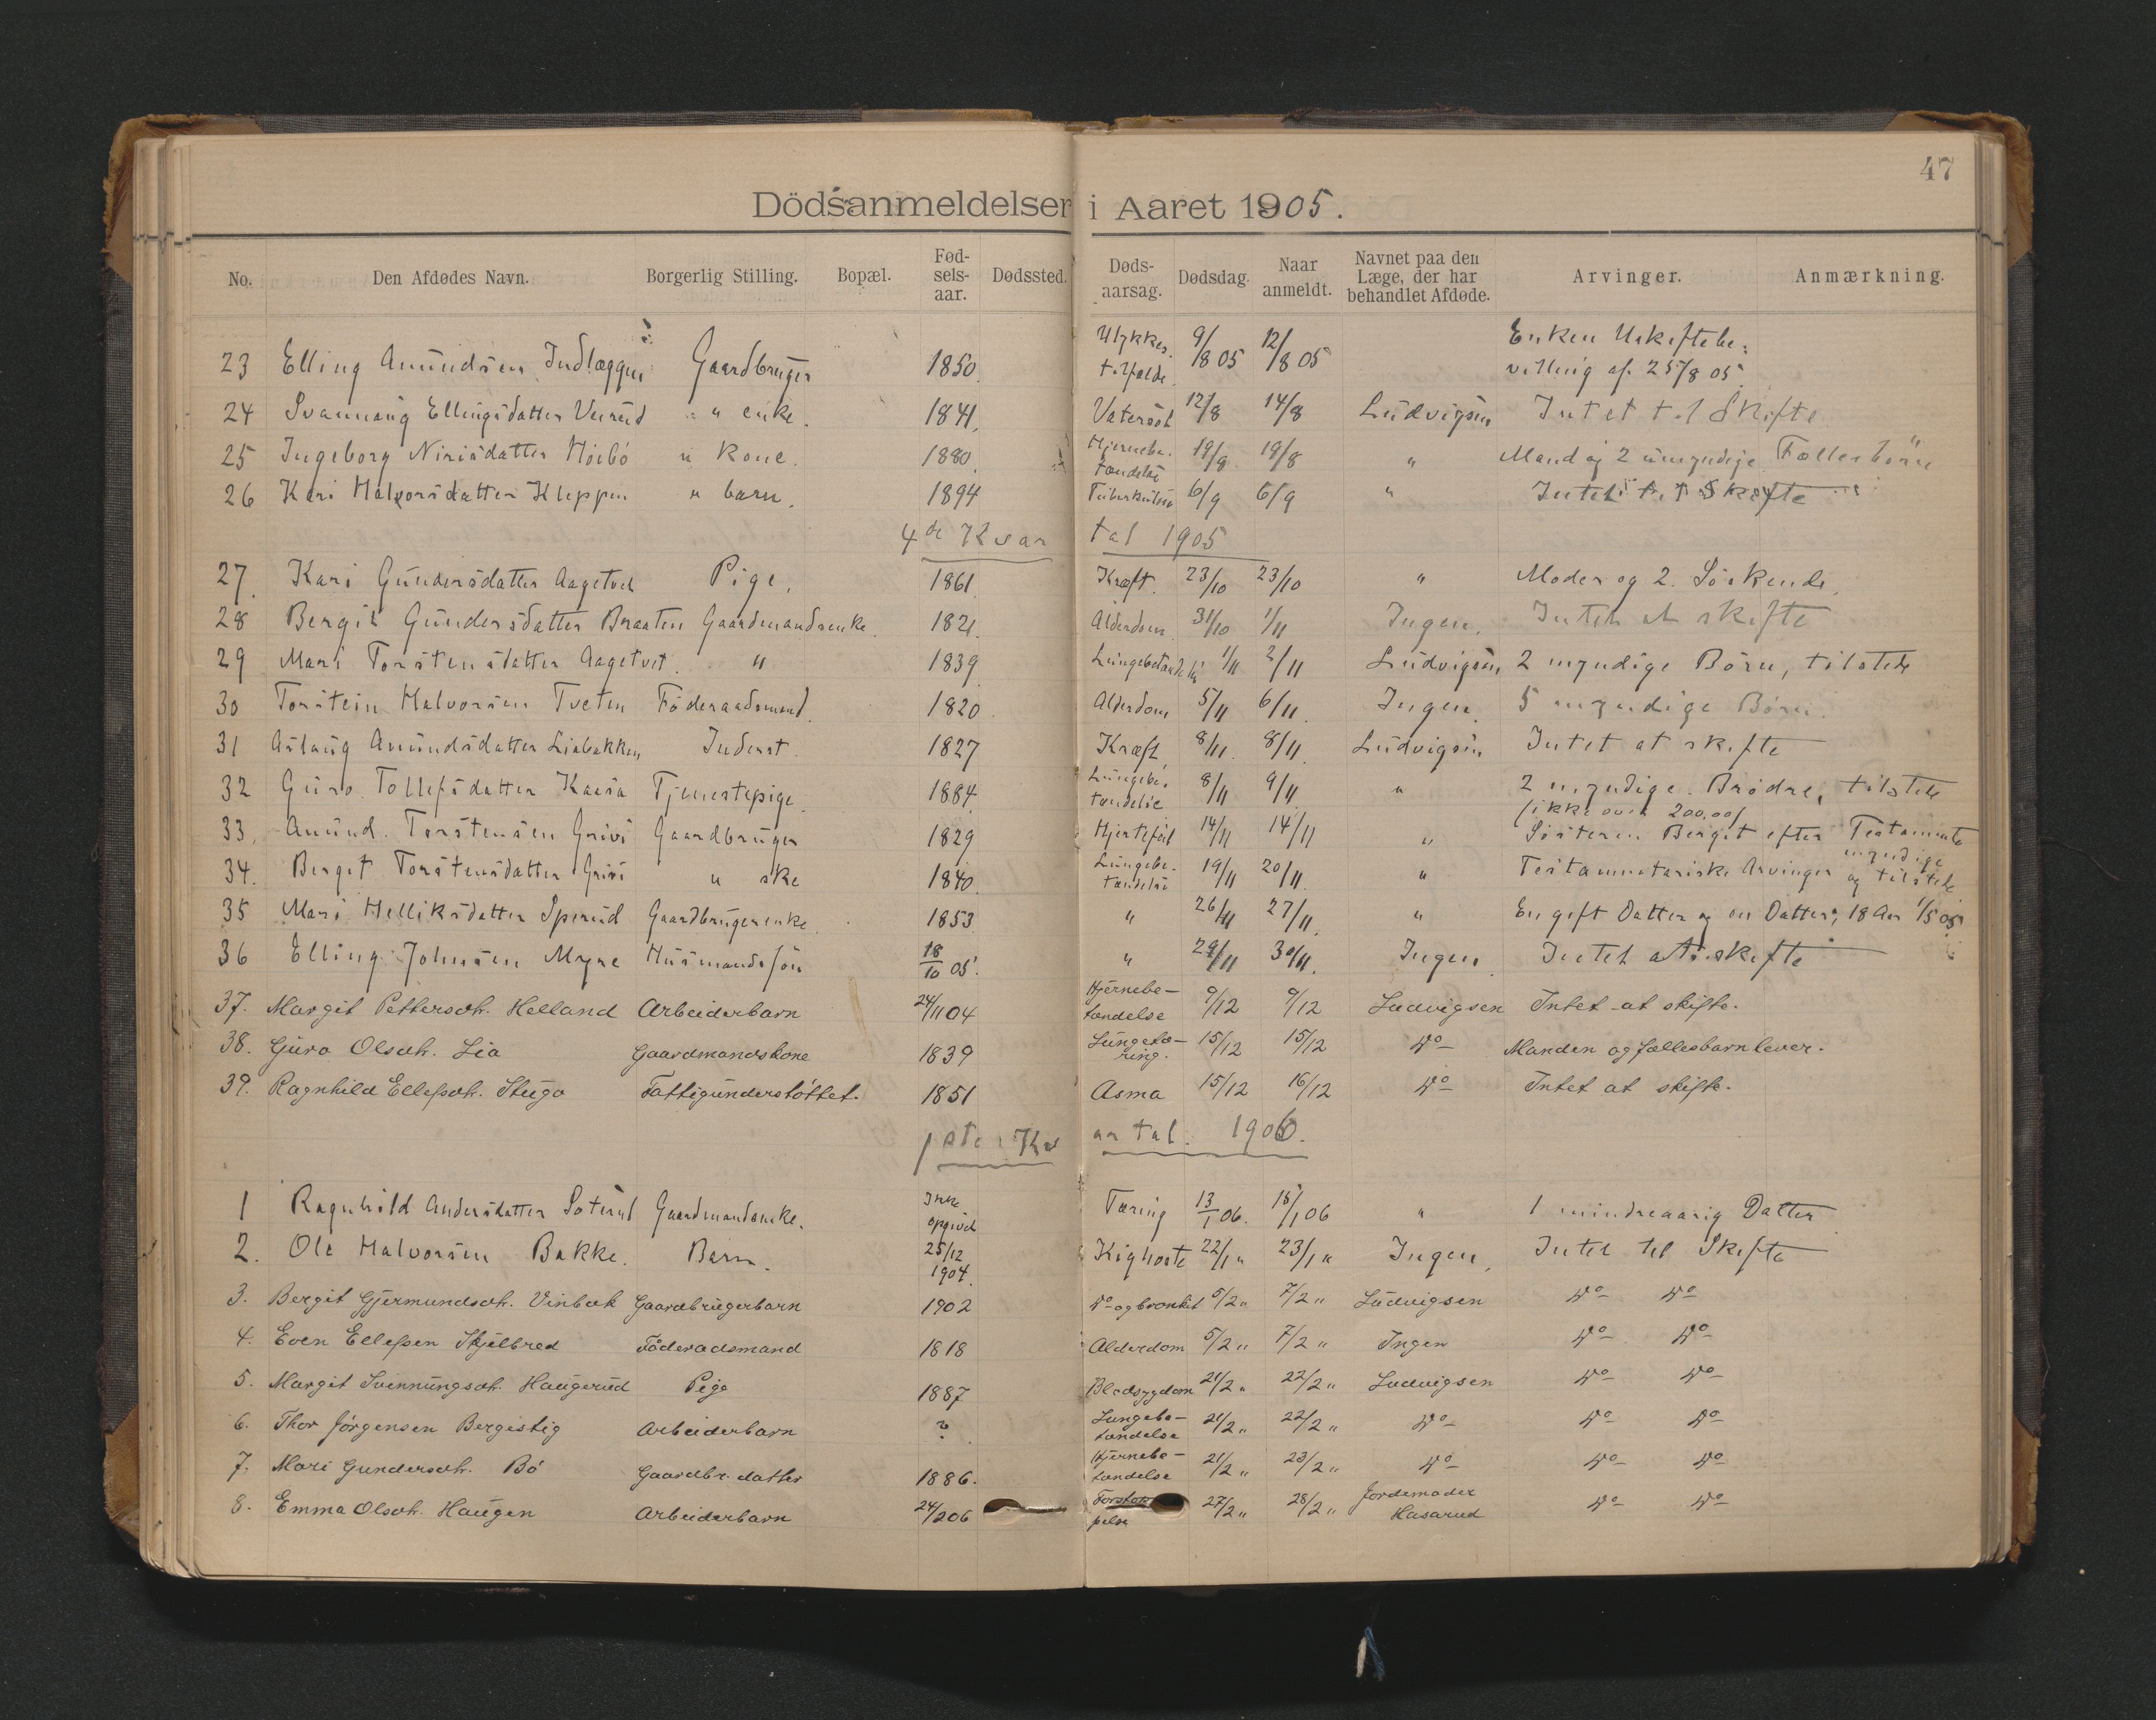 47
Dödsanmeldelser i Aaret 1905.
No. Den Afdødes Navn. Borgerlig Stilling. Bopæl. Fød-sels-aar. Dødssted. Døds-aarsag. Dødsdag. Naar anmeldt. Navnet paa den Læge, der har behandlet Afdøde. Arvinger. Anmærkning.
23 Elling Amundsen Indlæggen Gaardbruger 1850 Ulykkes-tilfælde 9/8 05 12/8 05 Enken Uskiftebe-villing af 25/8 05
24 Svannaug Ellingsdatter " enke. 1841 Vatersot 12/8 14/8 Ludvigsen Intet til Skifte
25 Ingeborg Nirisdatter Höibö " Kone. 1880 Hjernebe-tændelse 19/8 19/8 " Mand og 2 umyndige Fællesbörn
26 Kari Halvorsdatter Kleppen " barn. 1894 Tuberkulose 6/9 6/9 " Intet at Skifte
4de Kvartal 1905
27. Kari Gundersdatter Aagetvet Pige. 1861 Kræft. 23/10 23/10 " Moder og 2 Söskende.
28 Bergit Gundersdatter Braaten Gaardmandsenke. 1821. Alderdom 31/10 1/11 Ingen. Intet at skifte
29 Mari Torstensdatter Aagetvet " 1839 Lungebetændelse 1/11 2/11 Ludvigsen 2 myndige Börn, tilstede
30 Torstein Halvorsen Tveten Föderaadsmand. 1820 Alderdom 5/11 6/11 Ingen 5 myndige Börn.
31 Aslaug Amundsdatter Liabakken Inderst. 1827 Kræft 8/11 8/11 Ludvigsen Intet at skifte
32 Guro Tollefsdatter Kaasa Tjenestepige 1884 Lungebe-tændelse 8/11 9/11 " 2 myndige Brödre, tilstede
(ikke over 200.00)
33. Amund Torstensen Grivi Gaardbruger 1829 Hjertefeil 14/11 14/11 " Sösteren Berget efter Testamente
34. Berget Torstensdatter Grivi " ske 1840 Lungebe-tændelse 19/11 20/11 " Testamentariske Arvinger myndige og tilstede
35 Mari Helliksdatter Sperud Gaardbrugerenke 1853 " 26/11 27/11 " En gift Datter og en Datter, 18 Aar 1/5 05
36 Elling Johnsen Myre Husmandssön 18/10 05 " 29/11 30/11 Ingen Intet at skifte
37. Margit Pettersdtr. Helland Arbeiderbarn 24/11 04 Hjernebe-tændelse 9/12 9/12 Ludvigsen Intet at skifte.
38. Guro Olsdtr. Lia Gaardmandskone 1839 Lungetæ-ring. 15/12 15/12 Do Manden og fællesbarn lever.
39. Ragnhild Ellefsdtr. Stugo Fattigunderstöttet. 1851 Asma 15/12 16/12 Do Intet at skifte.
1ste Kvartal. 1906.
1 Ragnhild Andersdatter Soterud Gaardmandsenke. Ikke opgived Tæring 13/1 06. 15/1 06 " 1 mindreaarig Datter
2. Ole Halvorsen Bakke. Barn. 25/12 1904. Kighoste 22/1 " 23/1 " Ingen. Intet til Skifte
3. Bergit Gjermundsdtr. Vinbæk Gaardbrugerbarn 1902 Do og bronkit 5/2 " 7/2 " Ludvigsen Do Do
4. Even Ellefsen Skjelbred Föderadsmand 1818 Alderdom 5/2 " 7/2 " Ingen Do Do
5. Margit Svennungsdtr. Haugerud Pige 1887 Blodsygdom 21/2 " 22/2 " Ludvigsen Do Do
6. Thor Jörgensen Bergestig Arbeiderbarn ? Lungebe-tændelse 21/2 " 22/2 " Do Do Do
7. Mari Gundersdtr. Bö Gaardbr. datter 1886. Hjernebe-tændelse 21/2 " 23/2 " Do Do Do
8. Emma Olsdtr. Haugen Arbeiderbarn 24/2 06 27/2 " 28/2 " Jordemoder Hasarud Do Do